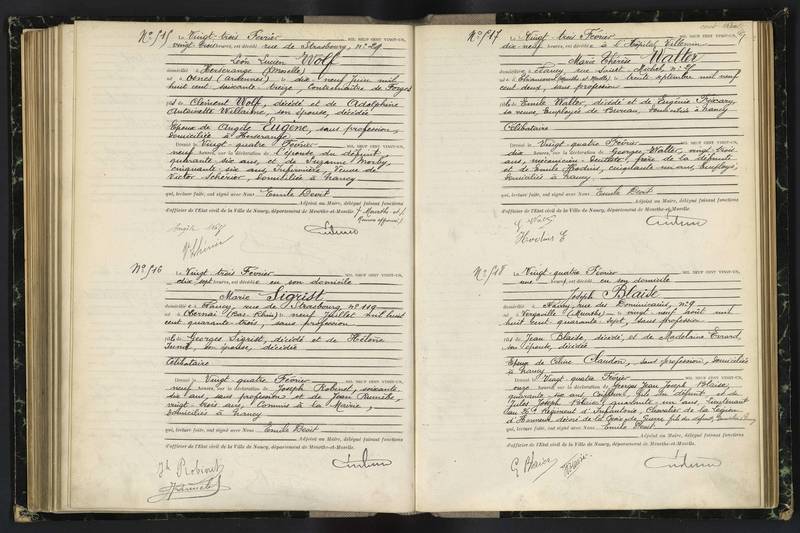 N° 515 Le Vingt-trois Février MIL NEUF CENT VINGT-UN,
vingt-trois heures, est décédé rue de Strasbourg, n° 29
Léon Lucien Wolf
domicilié à Herserange (Moselle)
né à Osnes (Ardennes) le dix-neuf Juin mil
huit cent soixante-treize, Contremaître de Forges
fils de Clément Wolf, décédé et de Adolphine
Antoinette Willaime, son épouse, décédée
Epoux de Angèle Eugène, sans profession
domiciliée à Herserange
Dressé le Vingt-quatre Février MIL NEUF CENT VINGT-UN,
neuf heures, sur la déclaration de l'épouse du défunt,
quarante six ans, et de Suzanne
cinquante-six ans, Infirmière, Veuve de
Victor Schérier, domiciliés à Nancy
qui, lecture faite, ont signé avec Nous Emile Devit
Adjoint au Maire, délégué faisant fonctions
d'officier de l'Etat civil de la Ville de Nancy, département de Meurthe-et-Moselle.
N° 516 Le Vingt-trois Février MIL NEUF CENT VINGT-UN,
dix sept heures, est décédé en son domicile
Marie Sigrist
domiciliée à Nancy, rue de Strasbourg, n° 119
née à Obernai (Bas-Rhin) le neuf Juillet mil huit
cent quarante-trois, sans profession
fille de Georges Sigrist, décédé et de Hélène
son épouse, décédée
Célibataire
Dressé le Vingt quatre Février MIL NEUF CENT VINGT-UN,
neuf heures, sur la déclaration de Joseph Robinot, soixante
dix ans, sans profession et de Jean
vingt-trois ans, Commis à la Mairie,
domiciliés à Nancy
qui, lecture faite, ont signé avec Nous Emile Devit
Adjoint au Maire, délégué faisant fonctions
d'officier de l'Etat civil de la Ville de Nancy, département de Meurthe-et-Moselle.
N° 517 Le Vingt trois Février MIL NEUF CENT VINGT-UN,
dix-neuf heures, est décédée à l'Hôpital Villemin
Marie Thérèse Walter
domiciliée à Nancy, rue Saint Michel, n°
le trente septembre mil neuf
cent deux, sans profession
fille de Emile Walter, décédé et de Eugénie
sa veuve, Employée de Bureau, domiciliée à Nancy
Célibataire
Dressé le Vingt-quatre Février MIL NEUF CENT VINGT-UN,
dix heures, sur la déclaration de Georges Walter, vingt trois
ans, mécanicien dentiste, frère de la défunte
et de Emile Hodius, cinquante un ans, Employé,
domiciliés à Nancy
qui, lecture faite, ont signé avec Nous Emile Devit
Adjoint au Maire, délégué faisant fonctions
d'officier de l'Etat civil de la Ville de Nancy, département de Meurthe-et-Moselle.
Hodius E
N° 518 Le Vingt quatre Février MIL NEUF CENT VINGT-UN,
une heure, est décédé en son domicile
Joseph Blaise
domicilié à Nancy, rue des Dominicains, n° 9
né à Vergaville (Meurthe) le vingt neuf août mil
huit cent quarante sept, sans profession
fils de Jean Blaise, décédé, et de Madelaine Evrard,
son épouse, décédée
Epoux de Céline Claudon, sans profession, domiciliée
à Nancy
Dressé le Vingt quatre Février MIL NEUF CENT VINGT-UN,
onze heures, sur la déclaration de Georges Jean Joseph Blaise,
quarante six ans, Coiffeur, fils du défunt et de
Jules Joseph Blaise, quarante un ans, Lieutenant
au Régiment d'Infanterie, Chevalier de la Légion
d'Honneur, décoré de la Croix de Guerre, fils du défunt,
qui, lecture faite, ont signé avec Nous Emile Devit
Adjoint au Maire, délégué faisant fonctions
d'officier de l'Etat civil de la Ville de Nancy, département de Meurthe-et-Moselle.
G Blaise